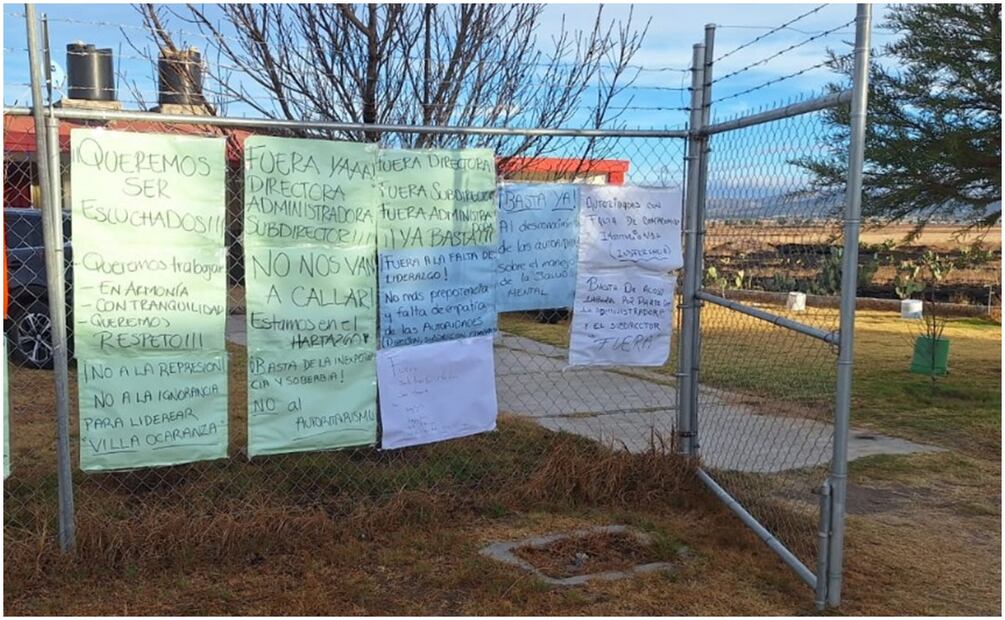 ¡¡QUEREMOS
SER
ESCUCHADOS!!!
- Queremos trabajar
- EN ARMONÍA
- CON TRANQUILIDAD
- QUEREMOS
RESPETO!!!
¡NO A LA REPRESION!
NO A LA IGNORANCIA
PARA LIDEREAR
"VILLA OCARANZA"
FUERA YAAA!
DIRECTORA
ADMINISTRADORA
SUBDIRECTOR!!!
NO NOS VAN
A CALLAR!
Estamos en el
HARTAZGO!
¡BASTA DE LA INEXPERI
CIA Y SOBERBIA!
NO al
AUTORITARISMO
FUERA DIRECTORA
FUERA SUBDIREC
FUERA ADMINIST
¡¡YA BASTA!!
¡FUERA A LA FALTA DE
LIDERAZGO!
NO más prepotencia
y falta de empatía
de las AUTORIDADES
Fuera
¡BASTA YA!
Al desconocimiento
de las autoridades
sobre el manejo
de la SALUD
MENTAL
AUTORIDADES CON
FALTA DE
BASTA DE ACOSO
LABORAL POR PARTE DE
LA ADMINISTRADORA
Y EL SUBDIRECTOR
"FUERA"